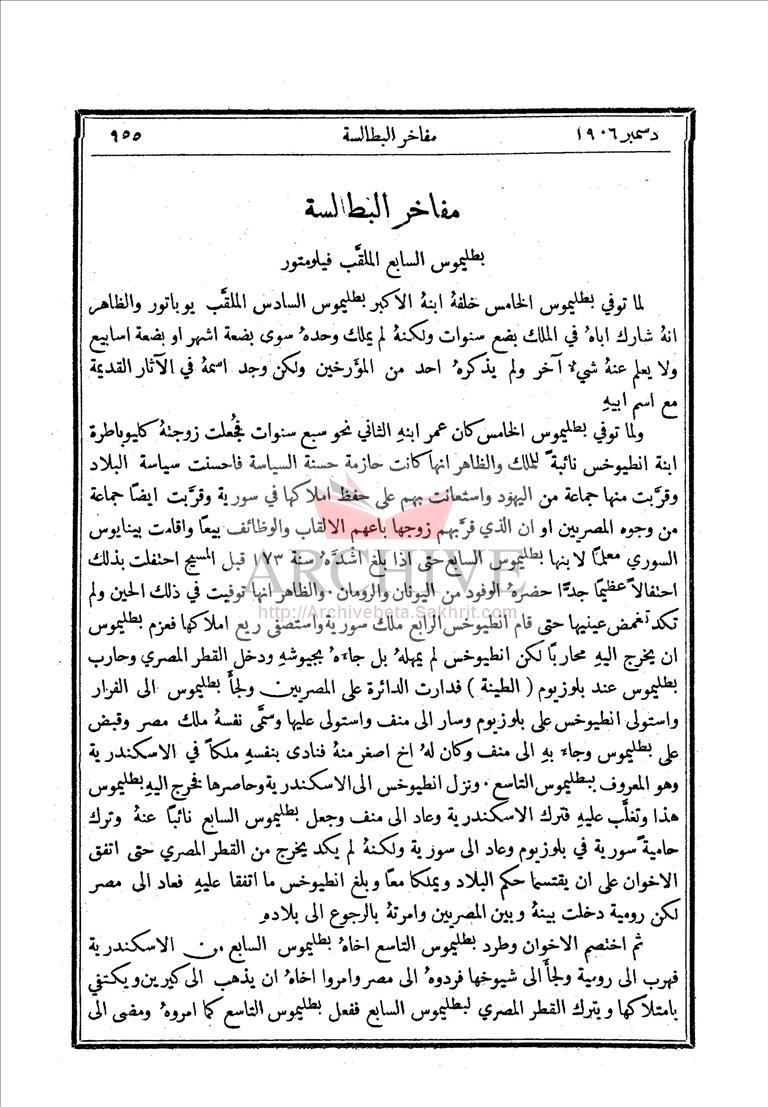 دسمبر ١٩٠٦ مفاخر البطالسة ٩٥٥
مفاخر البطالسة
بطليموس السابع الملقَّب فيلومتور
لما توفي بطليموس الخامس خلفهُ ابنهُ الاكبر بطليموس السادس الملقَّب يوباتور والظاهر
انهُ شارك اباهُ في الملك بضع سنوات ولكنهُ لم يملك وحدهُ سوى بضعة اشهر او بضعة اسابيع
ولا يعلم عنهُ شيءٌ آخر ولم يذكرهُ احد من المؤرخين ولكن وجد اسمهُ في الآثار القديمة
مع اسم ابيهِ
ولما توفي بطليموس الخامس كان عمر ابنهِ الثاني نحو سبع سنوات فجُعلت زوجتهُ كليوباطرة
ابنة انطيوخس نائبةً للملك والظاهر انها كانت حازمة حسنة السياسة فاحسنت سياسة البلاد
وقرَّبت منها جماعة من اليهود واستعانت بهم على حفظ املاكها في سورية وقرَّبت ايضًا جماعة
من وجوه المصريين او ان الذي قرَّبهم زوجها باعهم الالقاب والوظائف بيعًا واقامت بينايوس
السوري معلمًا لابنها بطليموس السابع حتى اذا بلغ اشُدَّهُ سنة ١٧٣ قبل المسيح احتفلت بذلك
احتفالاً عظيمًا جدًّا حضرهُ الوفود من اليونان والرومان. والظاهر انها توفيت في ذلك الحين ولم
تكد تغمض عينيها حتى قام انطيوخس الرابع ملك سورية واستصفى ريع املاكها فعزم بطليموس
ان يخرج اليهِ محاربًا لكن انطيوخس لم يمهلهُ بل جاءهُ بجيوشهِ ودخل القطر المصري وحارب
بطليموس عند بلوزيوم (الطينة) فدارت الدائرة على المصريين ولجأَ بطليموس الى الفرار
واستولى انطيوخس على بلوزيوم وسار الى منف واستولى عليها وسمَّى نفسهُ ملك مصر وقبض
على بطليموس وجاءَ بهِ الى منف وكان لهُ اخ اصغر منهُ فنادى بنفسهِ ملكاً في الاسكندرية
وهو المعروف ببطليموس التاسع. ونزل انطيوخس الى الاسكندرية وحاصرها فخرج اليهِ بطليموس
هذا وتغلَّب عليهِ فترك الاسكندرية وعاد الى منف وجعل بطليموس السابع نائبًا عنهُ وترك
حاميةً سورية في بلوزيوم وعاد الى سورية ولكنهُ لم يكد يخرج من القطر المصري حتى اتفق
الاخوان على ان يقتسما حكم البلاد ويملكا معًا وبلغ انطيوخس ما اتفقا عليهِ فعاد الى مصر
لكن رومية دخلت بينهُ وبين المصريين وامرتهُ بالرجوع الى بلادهِ
ثم اختصم الاخوان وطرد بطليموس التاسع اخاهُ بطليموس السابع من الاسكندرية
فهرب الى رومية ولجأَ الى شيوخها فردوهُ الى مصر وامروا اخاهُ ان يذهب الى كيرين ويكتفي
بامتلاكها ويترك القطر المصري لبطليموس السابع ففعل بطليموس التاسع كما امروهُ ومضى الى
ARCHIVE
http://Archivebeta.Sakhrit.com